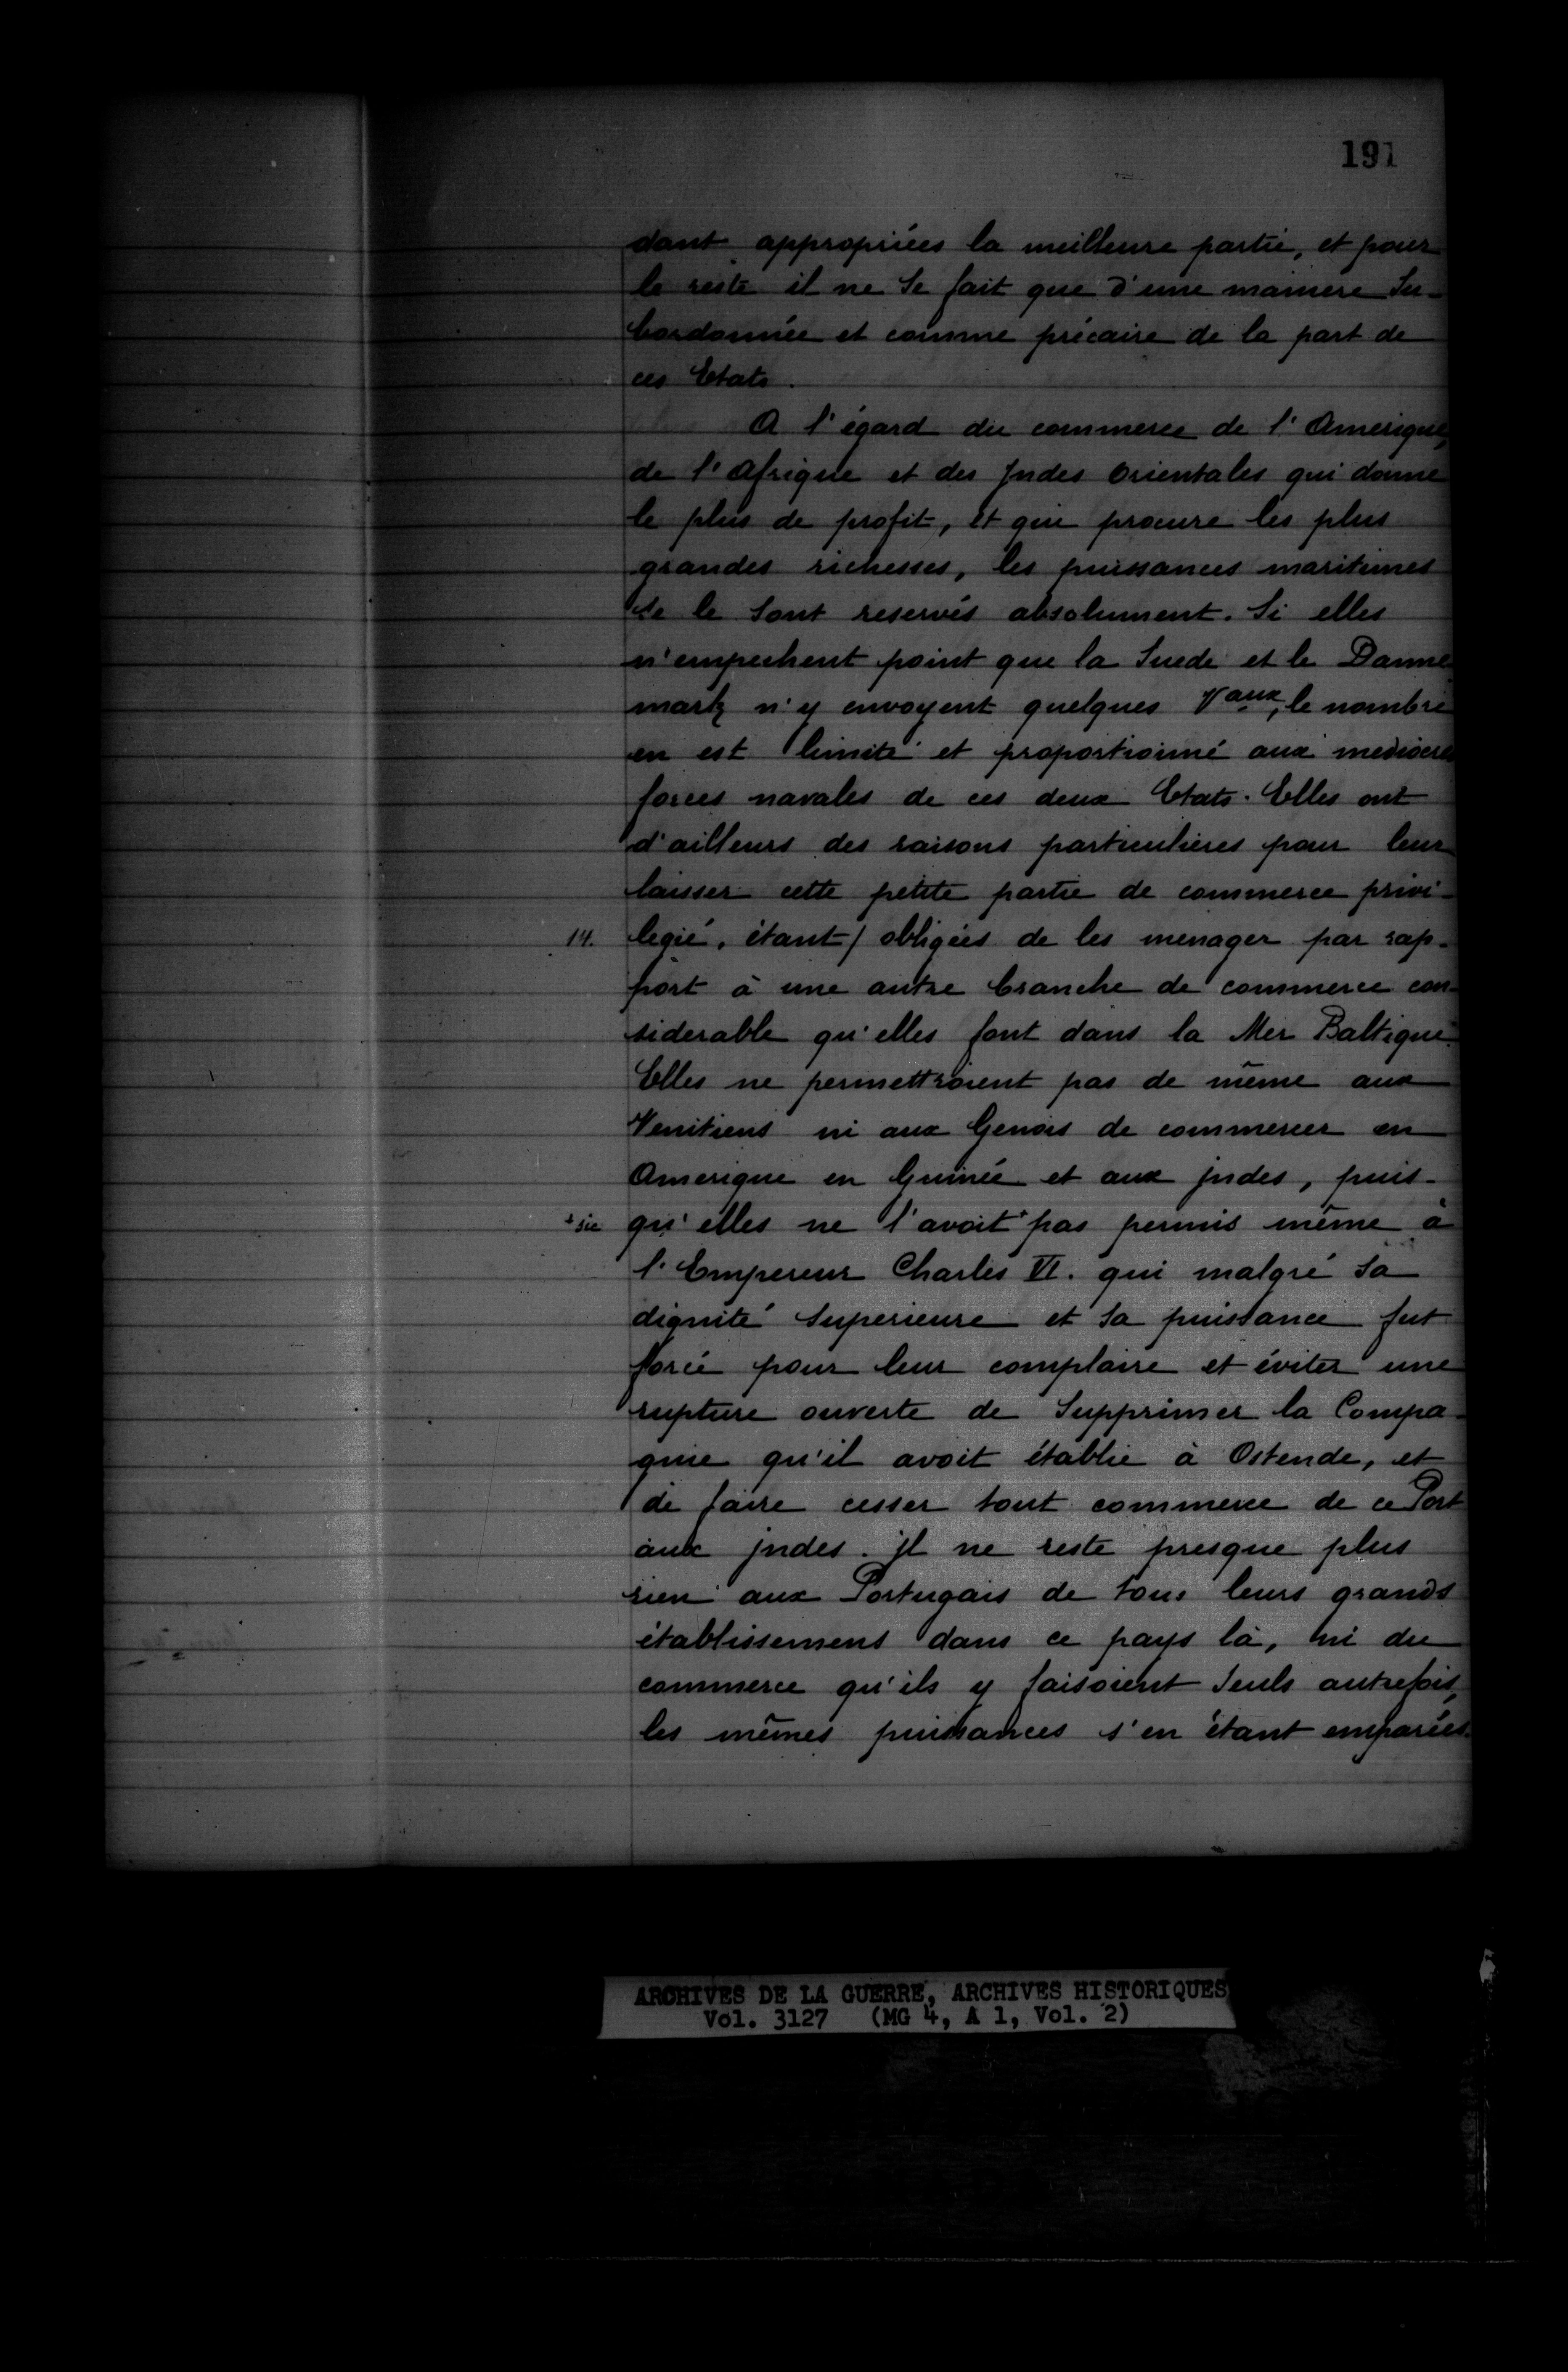 191
dant appropriées la meilleure partie, et pour
le reste il ne Se fait que d'une maniere Su-
bordonnée et comme précaire de la part de
ces Etats.
A l'égard du commerce de l'Amerique,
de l'Afrique et des Jndes Orientales qui donne
le plus de profit, et qui procure les plus
grandes richesses, les puissances maritimes
Se le Sont reservés absolument. Si elles
n'empechent point que la Suede et le Danne
mark n'y envoyent quelques Vaux, le nombre
en est limité et proportionné aux mediocres
forces navales de ces deux Etats. Elles ont
d'ailleurs des raisons particulières pour leur
laisser cette petite partie de commerce privi-
14. legié, étant/ obligées de les menager par rap-
port à une autre branche de commerce con-
siderable qu'elles font dans la Mer Baltique.
Elles ne permettroient pas de même aux
Venitiens ni aux Genois de commercer en
Amerique en Guinée et aux jndes, puis-
+ sic qu'elles ne l'avoit+ pas permis même à
l'Empereur Charles VI. qui malgré Sa
dignité Superieure et Sa puissance fut
forcé pour leur complaire et éviter une
rupture ouverte de Supprimer la Compa-
gnie qu'il avoit établie à Ostende, et
de faire cesser tout commerce de ce Port
aux jndes. jl ne reste presque plus
rien aux Portugais de tous leurs grands
établissemens dans ce pays là, ni du
commerce qu'ils y faisoient Seuls autrefois,
les mêmes puissances s'en étant emparées.
ARCHIVES DE LA GUERRE, ARCHIVES HISTORIQUES
Vol. 3127 (MG 4, A 1, Vol. 2)